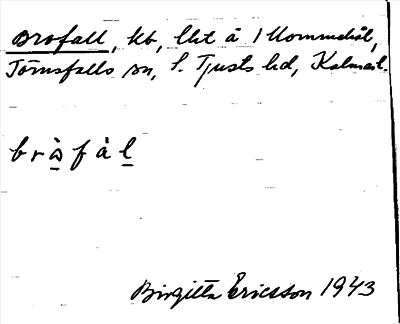 Brofall, kb, lht å 1 Mommehål,
Törnsfalls sn, S. Tjusts hd, Kalmar l.
bròfàl
Birgitta Ericsson 1943